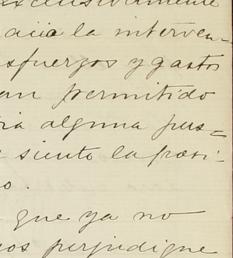 exclusivamente
la interven-
sfuerzos y gastos
an permitido
ria alguna pus=
siento la posi-
o.
que ya no
nos perjudique